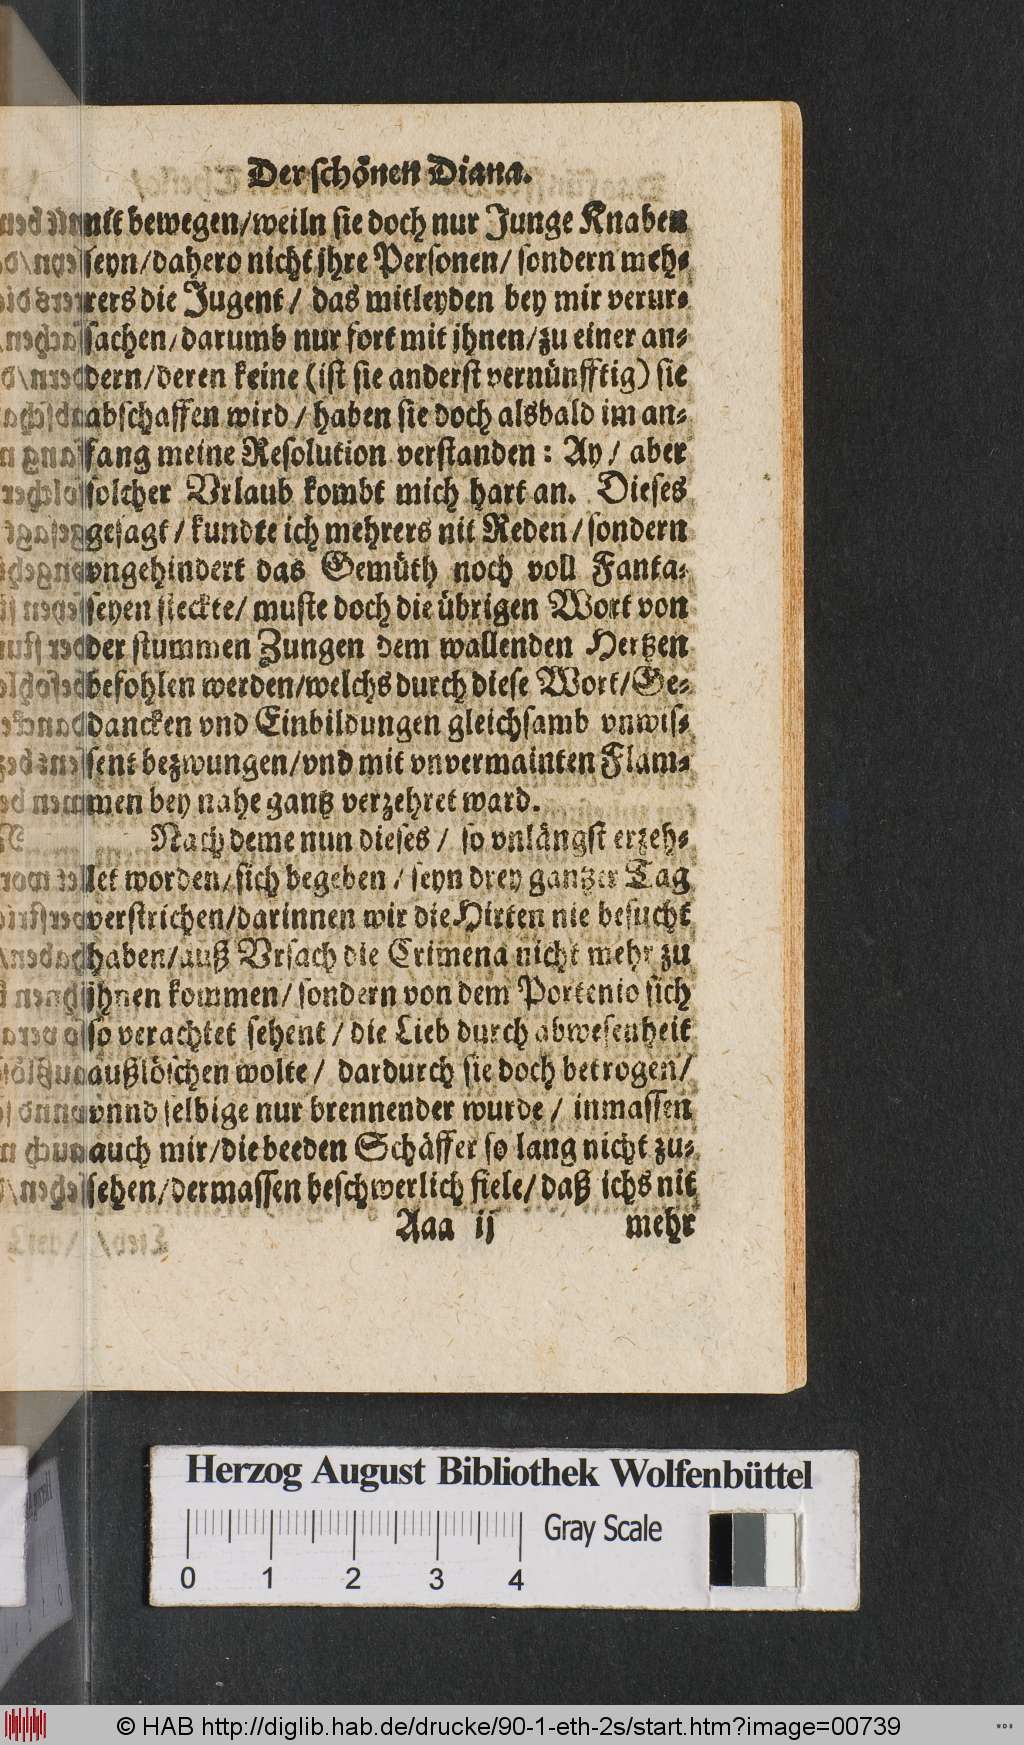 Der schönen Diana.
nit bewegen/weiln sie doch nur Junge Knaben
seyn/dahero nicht jhre Personen/ sondern meh⸗
rers die Jugent/ das mitleyden bey mir verur⸗
sachen/darumb nur fort mit jhnen/zu einer an⸗
dern/deren keine (ist sie anderst vernünfftig) sie
abschaffen wird/ haben sie doch alsbald im an⸗
fang meine Resolution verstanden: Ay/ aber
solcher Vrlaub kombt mich hart an. Dieses
gesagt/ kundte ich mehrers nit Reden/ sondern
vngehindert das Gemüth noch voll Fanta⸗
seyen steckte/ muste doch die übrigen Wort von
der stummen Zungen dem wallenden Hertzen
befohlen werden/welchs durch diese Wort/Ge⸗
dancken vnd Einbildungen gleichsamb vnwis⸗
sent bezwungen/vnd mit vnvermainten Flam⸗
men bey nahe gantz verzehret ward.
Nach deme nun dieses/ so vnlängst erzeh⸗
let worden/sich begeben/ seyn drey gantzer Tag
verstrichen/darinnen wir die Hirten nie besucht
haben/auß Vrsach die Crimena nicht mehr zu
jhnen kommen/ sondern von dem Portenio sich
so verachtet sehent/ die Lieb durch abwesenheit
außlöschen wolte/ dardurch sie doch betrogen/
vnnd selbige nur brennender wurde/ inmassen
auch mir/die beeden Schäffer so lang nicht zu⸗
sehen/dermassen beschwerlich fiele/daß ichs nit
Aaa ij mehr
Herzog August Bibliothek Wolfenbüttel
Gray Scale
0 1 2 3 4
© HAB http://diglib.hab.de/drucke/90-1-eth-2s/start.htm?image=00739